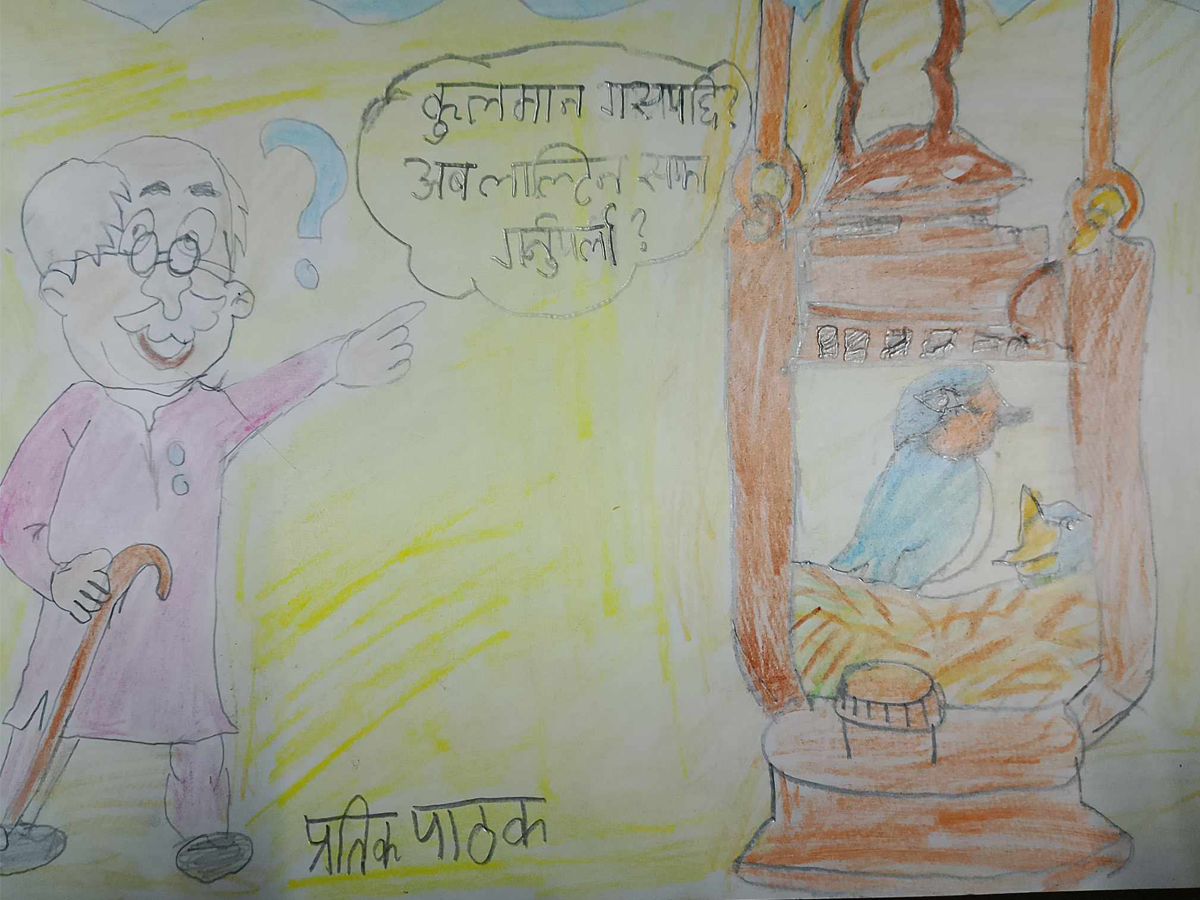 कुलमान गएपछि?
अब लाल्टिन सफा
गर्नुपर्ला?
प्रतिक पाठक